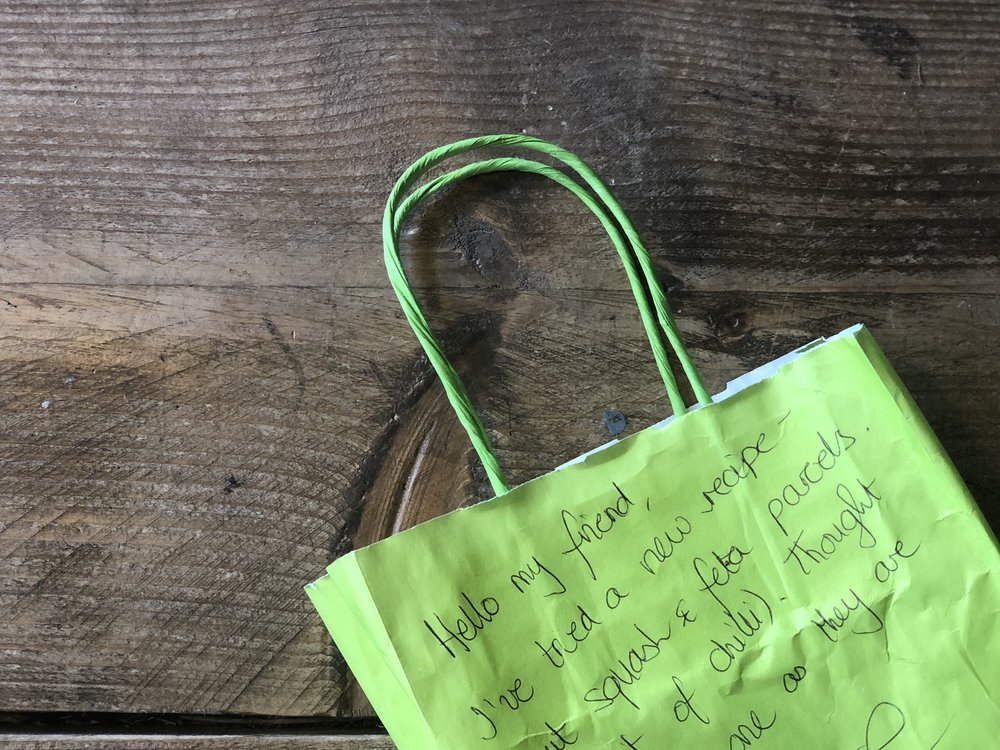 Hello my friend,
I've tried a new recipe -
squash & feta parcels.
of chilli). thought
as they are